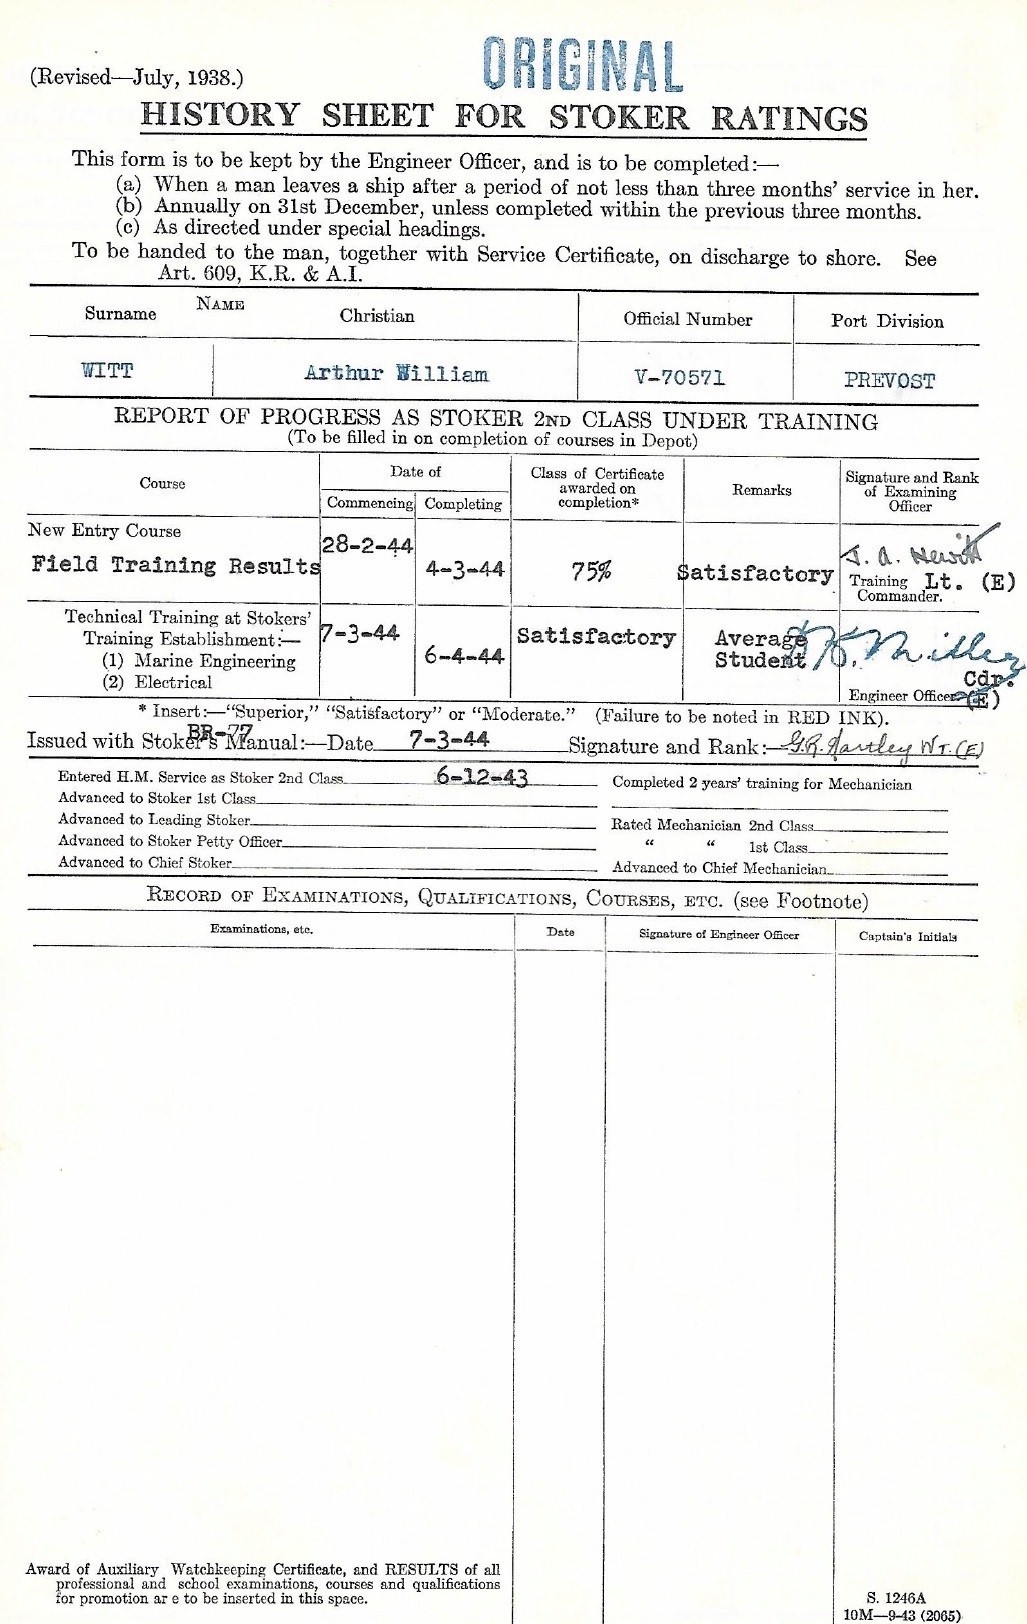 ORIGINAL
(Revised—July, 1938.)
HISTORY SHEET FOR STOKER RATINGS
This form is to be kept by the Engineer Officer, and is to be completed:—
(a) When a man leaves a ship after a period of not less than three months' service in her.
(b) Annually on 31st December, unless completed within the previous three months.
(c) As directed under special headings.
To be handed to the man, together with Service Certificate, on discharge to shore. See
Art. 609, K.R. & A.I.
NAME
Surname Christian Official Number Port Division
WITT Arthur William V-70571 PREVOST
REPORT OF PROGRESS AS STOKER 2ND CLASS UNDER TRAINING
(To be filled in on completion of courses in Depot)
Course
Date of
Commencing Completing
Class of Certificate
awarded on
completion*
Remarks
Signature and Rank
of Examining
Officer
New Entry Course
Field Training Results
28-2-44
4-3-44
75%
Satisfactory
J. A. Hewitt
Training Lt. (E)
Commander.
Technical Training at Stokers'
Training Establishment:—
(1) Marine Engineering
(2) Electrical
7-3-44
6-4-44
Satisfactory
Average
Student
Cdr.
Engineer Officer (E)
* Insert:—"Superior," "Satisfactory" or "Moderate." (Failure to be noted in RED INK).
BR-77
Issued with Stoker's Manual:—Date 7-3-44 Signature and Rank:—G.R. Hartley WT. (E)
Entered H.M. Service as Stoker 2nd Class 6-12-43
Advanced to Stoker 1st Class
Advanced to Leading Stoker
Advanced to Stoker Petty Officer
Advanced to Chief Stoker
Completed 2 years' training for Mechanician
Rated Mechanician 2nd Class
" " 1st Class
Advanced to Chief Mechanician
RECORD OF EXAMINATIONS, QUALIFICATIONS, COURSES, ETC. (see Footnote)
Examinations, etc. Date Signature of Engineer Officer Captain's Initials
Award of Auxiliary Watchkeeping Certificate, and RESULTS of all
professional and school examinations, courses and qualifications
for promotion ar e to be inserted in this space.
S. 1246A
10M—9-43 (2065)